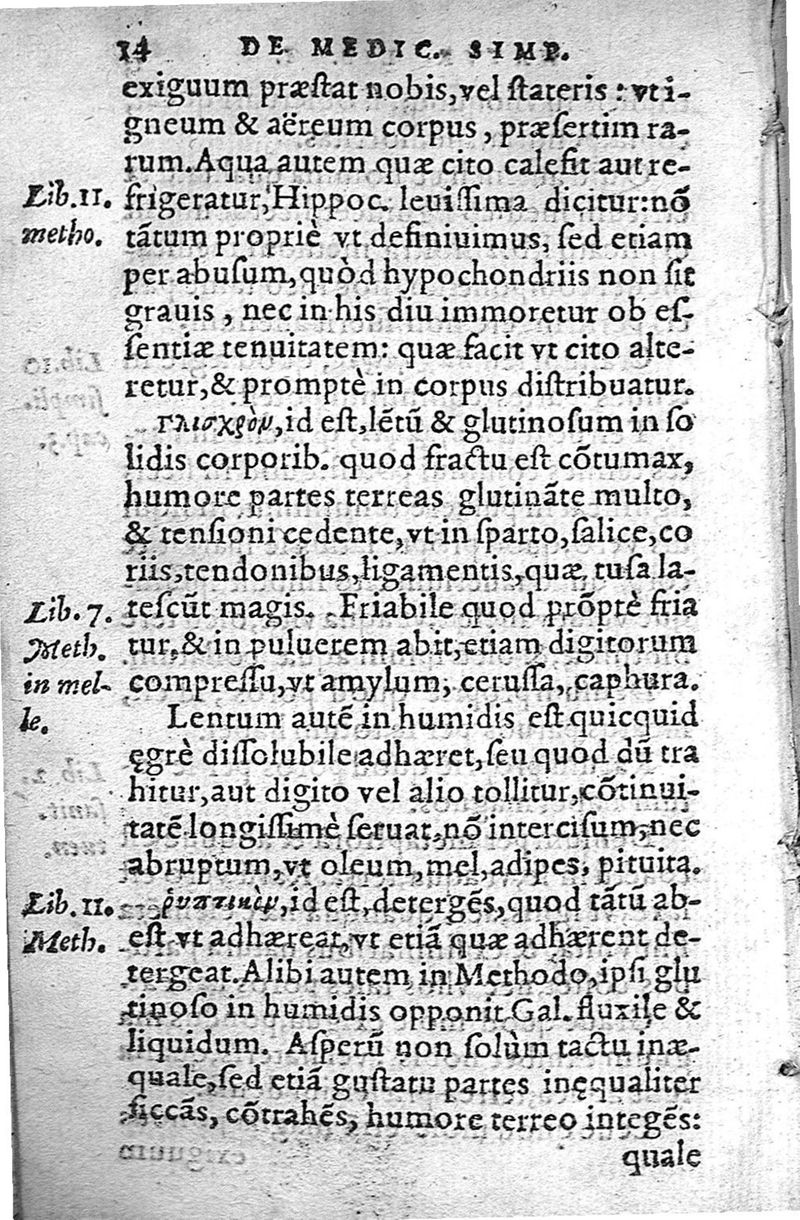 14 DE MEDIC. SIMP.
exiguum præſtat nobis, vel ſtateris: vt i-
gneum & aëreum corpus, præſertim ra-
rum. Aqua autem quæ cito calefit aut re-
Lib. 11.
metho.
frigeratur, Hippoc. leuiſſima dicitur: nō
tātum propriè vt definiuimus, ſed etiam
per abuſum, quòd hypochondriis non ſit
grauis, nec in his diu immoretur ob eſ-
ſentiæ tenuitatem: quæ facit vt cito alte-
retur, & promptè in corpus diſtribuatur.
γλισχρὸν, id eſt, lētū & glutinoſum in ſo
lidis corporib. quod fractu eſt cōtumax,
humore partes terreas glutināte multo,
& tenſioni cedente, vt in ſparto, ſalice, co
riis, tendonibus, ligamentis, quæ tuſa la-
Lib. 7.
Meth.
in mel-
le.
teſcūt magis. Friabile quod prōptè fria
tur, & in puluerem abit, etiam digitorum
compreſſu, vt amylum, ceruſſa, caphura.
Lentum autē in humidis eſt quicquid
ęgrè diſſolubile adhæret, ſeu quod dū tra
hitur, aut digito vel alio tollitur, cōtinui-
tatē longiſſimè ſeruat, nō interciſum, nec
abruptum, vt oleum, mel, adipes, pituita.
Lib. 11.
Meth.
ῥυπτικὸν, id eſt, detergēs, quod tātū ab-
eſt vt adhæreat, vt etiā quæ adhærent de-
tergeat. Alibi autem in Methodo, ipſi glu
tinoſo in humidis opponit Gal. fluxile &
liquidum. Aſperū non ſolùm tactu inæ-
quale, ſed etiā guſtatu partes inęqualiter
ſiccās, cōtrahēs, humore terreo integēs:
quale